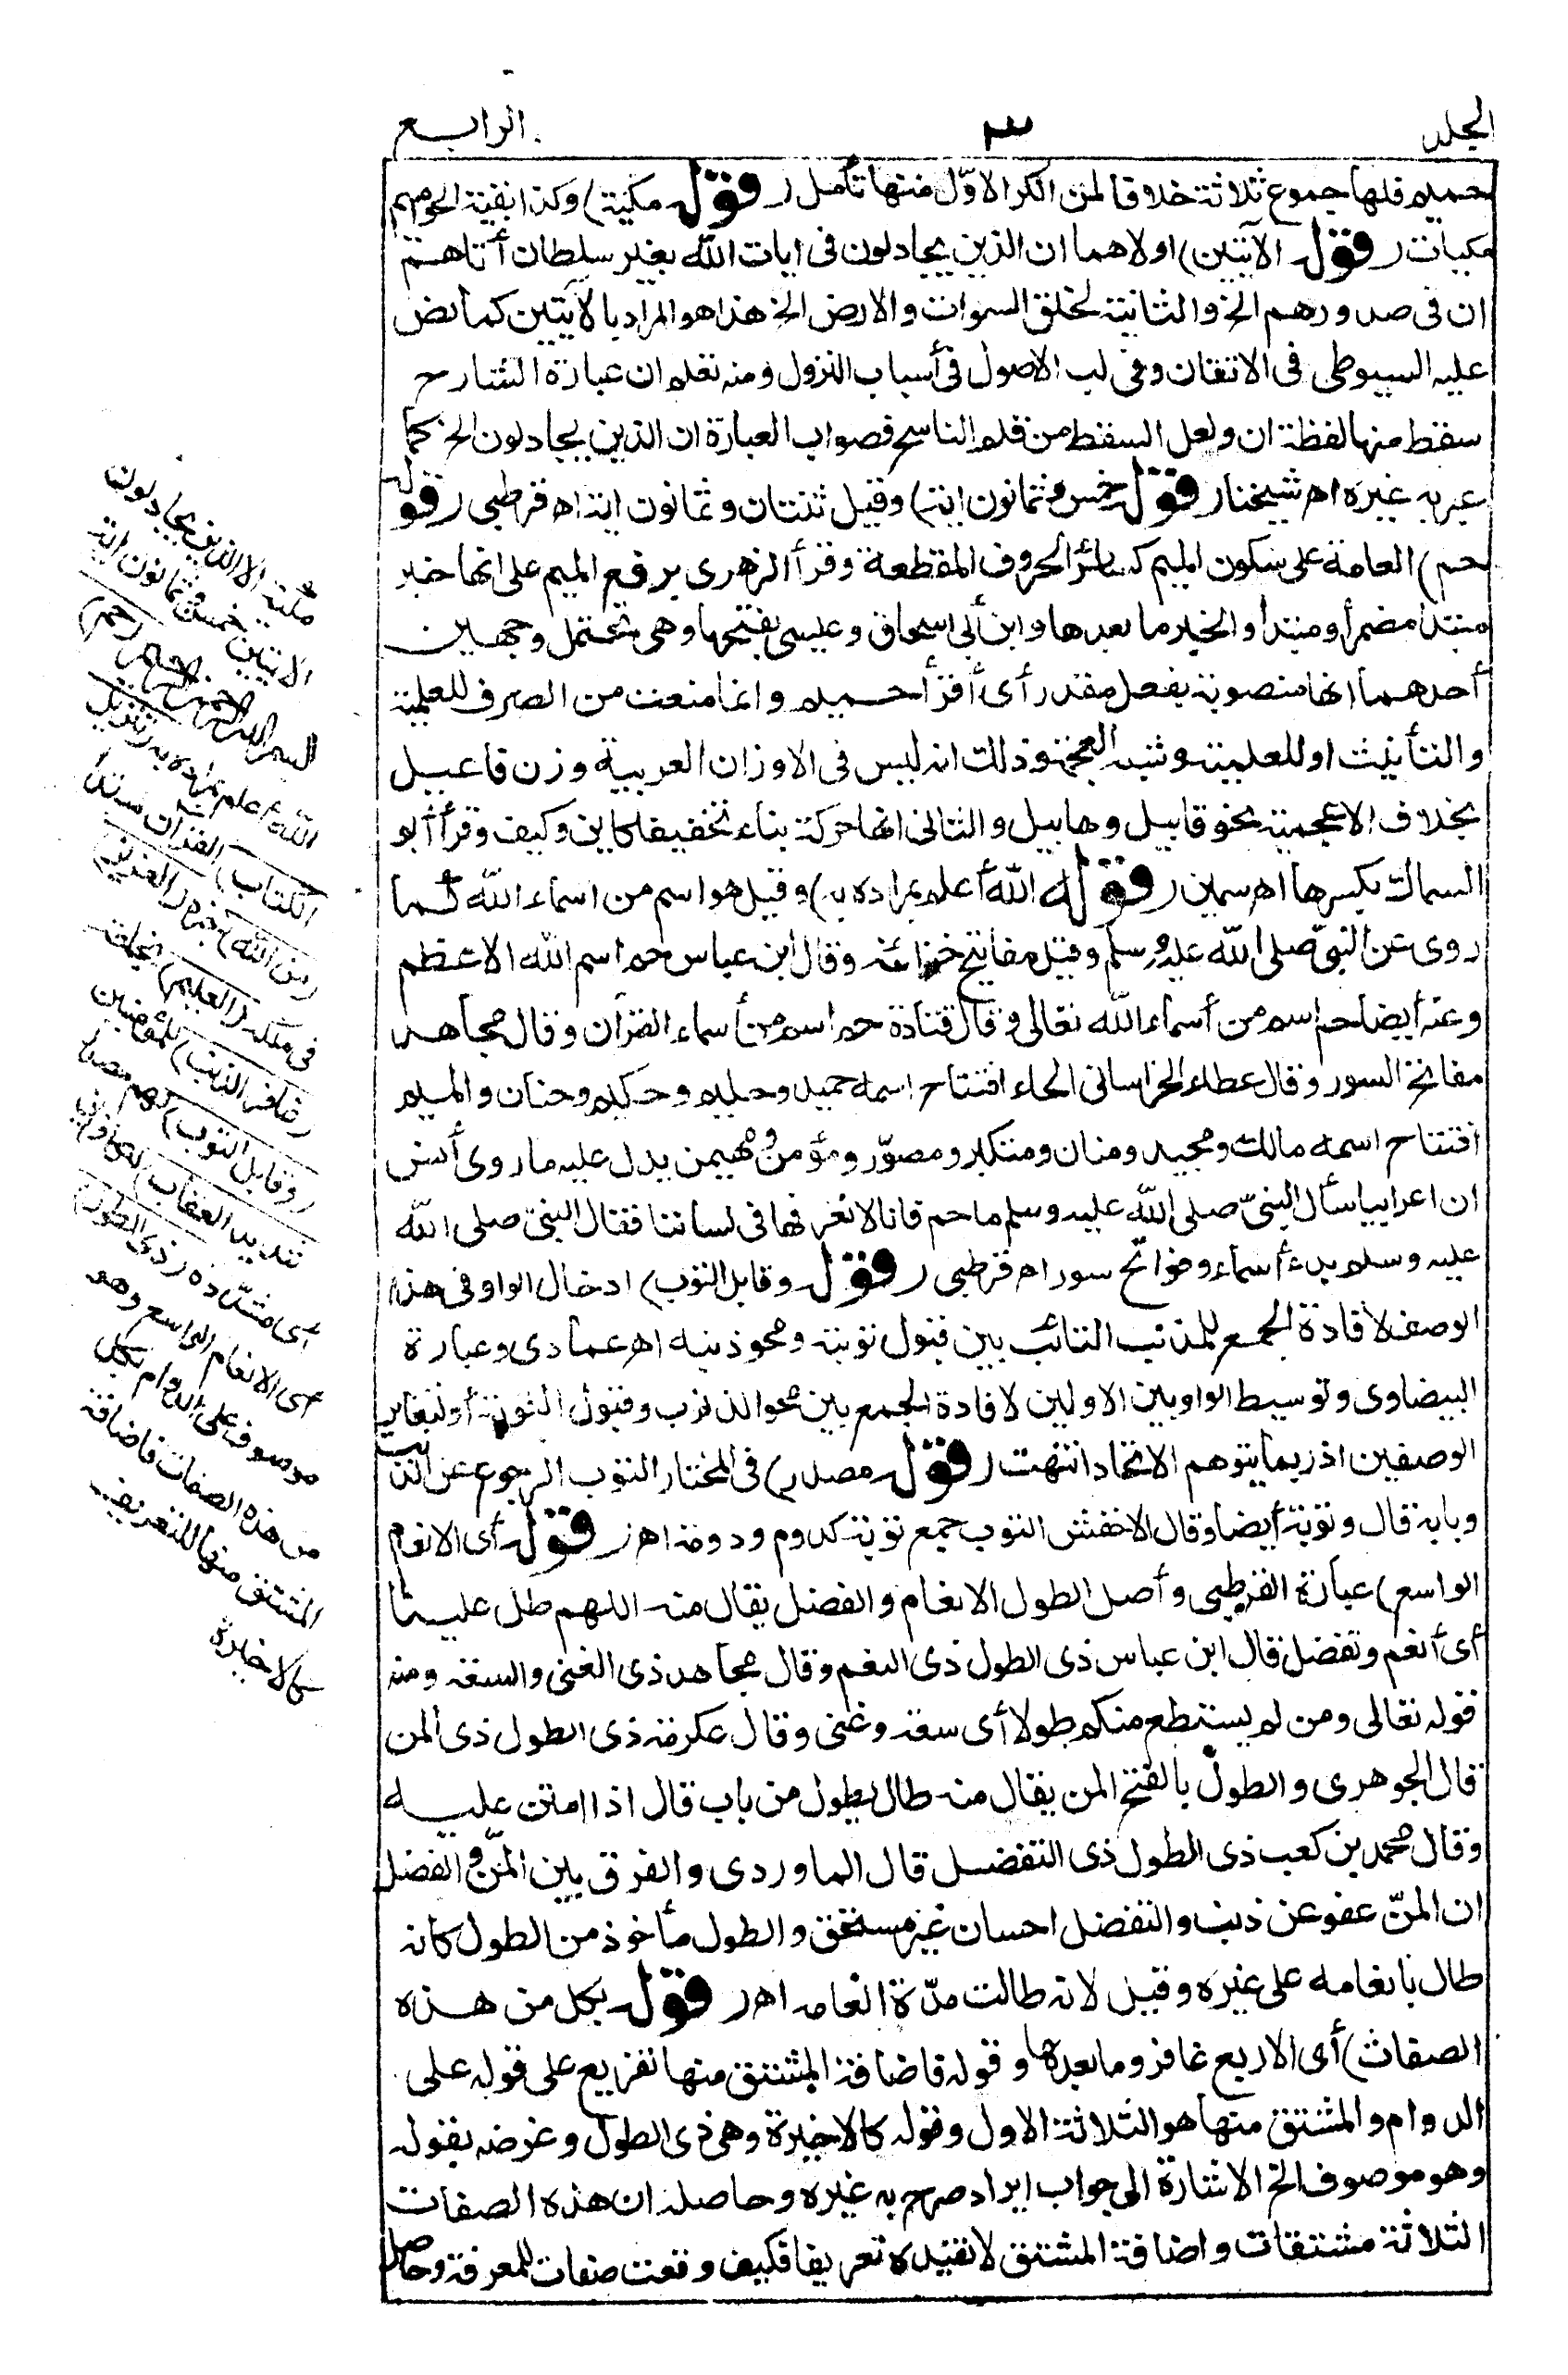 الجلد ٣ الرابع
حميم فلها جموع ثلاثة خلافا لمن انكر الاوّل منها تأمل (قوله مكية) وكذا بقية الحواميم
مكيات (قوله الآيتين) اولاهما ان الذين يجادلون فى ايات الله بغير سلطان أتاهم
ان فى صدورهم الخ والثانية لخلق السموات والارض الخ هذا هو المراد بالآيتين كما نص
عليه السيوطى فى الاتقان وفى لب الاصول فى أسباب النزول ومنه تعلم ان عبارة الشارح
سقط منها لفظة ان ولعل السقط من قلم الناسخ فصواب العبارة ان الذين يجادلون الخ كما
عبر به غيره اه شيخنا (قوله خمس وثمانون اية) وقيل ثنتان وثمانون اية اه قرطبى (قوله
حم) العامة على سكون الميم كسائر الحروف المقطعة وقرأ الزهرى برفع الميم على انها خبر
مبتدا مضمر أو مبتدأ والخبر ما بعدها وابن أبى اسحاق وعيسى بفتحها وهى تحتمل وجهين
أحدهما انها منصوبة بفعل مقدر أى أقرأ حميم وانما منعت من الصرف للعلمية
والتأنيث او للعلمية وشبه العجمة وذلك انه ليس فى الاوزان العربية وزن فاعيل
بخلاف الاعجمية نحو قابيل وهابيل والثانى انها حركة بناء تخفيفا كاين وكيف وقرأ أبو
السمال بكسرها اه سمين (قوله الله أعلم بمراده به) وقيل هو اسم من اسماء الله كما
روى عن النبىّ صلى الله عليه وسلم وقيل مفاتيح خزائنه وقال ابن عباس حم اسم الله الاعظم
وعنه أيضا حم اسم من أسماء الله تعالى وقال قتادة حم اسم من أسماء القرآن وقال مجاهد
مفاتح السور وقال عطاء الخراسانى الحاء افتتاح اسمه حميد وحليم وحكيم وحنان والميم
افتتاح اسمه مالك ومجيد ومنان ومتكبر ومصوّر ومؤمن ومهيمن يدل عليه ما روى أنس
ان اعرابيا سأل النبىّ صلى الله عليه وسلم ما حم فانا لا نعرفها فى لساننا فقال النبىّ صلى الله
عليه وسلم بدء أسماء وفواتح سور اه قرطبى (قوله وقابل التوب) ادخال الواو فى هذا
الوصف لافادة الجمع للمذنب التائب بين قبول توبته ومحو ذنبه اه عمادى وعبارة
البيضاوى وتوسيط الواو بين الاولين لافادة الجمع بين محو الذنوب وقبول التوبة أو لتغاير
الوصفين اذ ربما يتوهم الاتحاد انتهت (قوله مصدر) فى المختار التوب الرجوع عن الذنب
وبابه قال وتوبة أيضا وقال الاخفش التوب جمع توبة كدوم ودومة اه (قوله أى الانعام
الواسع) عبارة القرطبى وأصل الطول الانعام والفضل يقال منه اللهم طل علينا
أى أنعم وتفضل قال ابن عباس ذى الطول ذى النعم وقال مجاهد ذى الغنى والسعة ومنه
قوله تعالى ومن لم يستطع منكم طولا أى سعة وغنى وقال عكرمة ذى الطول ذى المن
قال الجوهرى والطول بالفتح المن يقال منه طال يطول من باب قال اذا امتن عليه
وقال محمد بن كعب ذى الطول ذى التفضل قال الماوردى والفرق بين المنّ والفضل
ان المنّ عفو عن ذنب والتفضل احسان غير مستحق والطول مأخوذ من الطول كانه
طال بانعامه على غيره وقيل لانه طالت مدّة انعامه اه (قوله بكل من هذه
الصفات) أى الاربع غافر وما بعدها وقوله فاضافة المشتق منها تفريع على قوله على
الدوام والمشتق منها هو الثلاثة الاول وقوله كالاخيرة وهى ذى الطول وغرضه بقوله
وهو موصوف الخ الاشارة الى جواب ايراد صرح به غيره وحاصله ان هذه الصفات
الثلاثة مشتقات واضافة المشتق لا تفيده تعريفا فكيف وقعت صفات للمعرفة وحاصل
مكية الا الذين يجادلون
الآيتين خمس وثمانون اية
بسم الله الرحمن الرحيم (حم)
الله أعلم بمراده به (تنزيل
الكتاب) القرآن مبتدأ
(من الله) خبره (العزيز)
فى ملكه (العليم) بخلقه
(غافر الذنب) للمؤمنين
(وقابل التوب) لهم مصدر
(شديد العقاب) للكافرين
أى مشدّده (ذى الطول)
أى الانعام الواسع وهو
موصوف على الدوام بكل
من هذه الصفات فاضافة
المشتق منها للتعريف
كالاخيرة